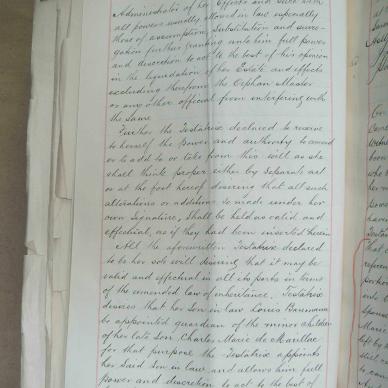 Administrator of her Effects and such with
all powers usually allowed in law especially
those of assumption, Substitution and surro-
gation further granting unto him full power
and discretion to act to the best of his opinion
in the liquidation of her Estate and effects
excluding therefrom the Orphan Master
or any other official from interfering with
the same
Further the Testatrix declared to reserve
to herself the power and authority to amend
or to add to or take from this will as she
shall think proper either by Separate act
or at the foot hereof desiring that all such
alterations or additions so made under her
own Signature, Shall be held as valid and
effectual, as if they had been inserted herein
All the aforewritten Testatrix declared
to be her sole will desiring that it may be
valid and effectual in all its parts in terms
of the amended law of inheritance. Testatrix
desires that her Son in law Louis Baumann
be appointed guardian of the minor children
of her late Son Charles Marie de Marillac
for that purpose the Testatrix appoints
her Said Son in law, and allows him full
power and discretion to act to the best of